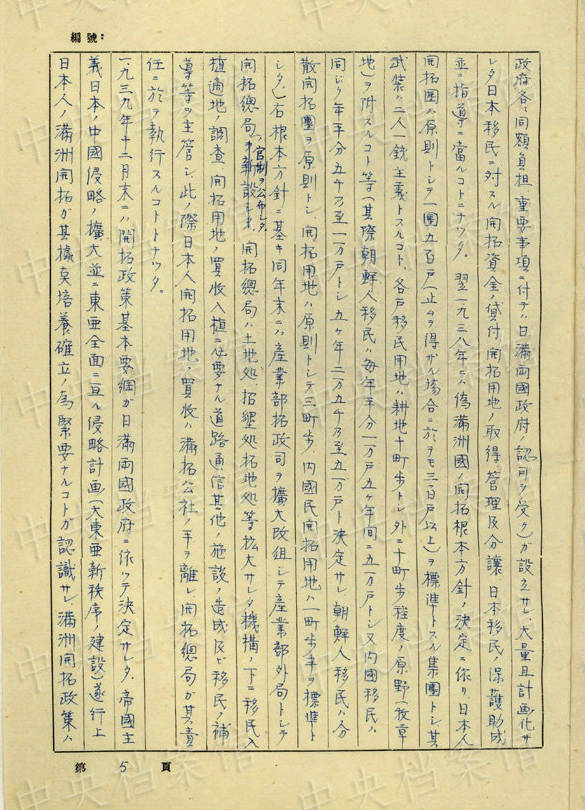 編號：
政府各々同額負担 重要事項ニ付テハ日満両國政府ノ認可ヲ受ク）ガ設立サレ、大量且計画化サ
レタ日本移民ニ対スル開拓資金ノ貸付 開拓用地ノ取得管理及分讓 日本移民ノ保護助成
並ニ指導ニ當ルコトニナッタ。翌一九三八年ニハ偽満洲國ノ開拓根本方針ノ決定ニ依リ日本人
開拓團ハ原則トシテ一團五百戸（止ムヲ得ザル場合ニ於テモ三百戸以上）ヲ標準トスル集團トシ其
武装ハ一人一銃主義トスルコト、各戸移民用地ハ耕地十町歩トシ外ニ十町歩程度ノ原野（牧草
地）ヲ附スルコト等（其際朝鮮人移民ハ毎年平分一万戸五ヶ年間ニ五万戸トシ又内國移民ハ
同ジク年平分五千乃至一万戸トシ五ヶ年ニ二万五千乃至五万戸ト決定サレ朝鮮人移民ハ分
散開拓團ヲ原則トシ、開拓用地ハ原則トシテ三町歩、内國民開拓用地ハ一町歩半ヲ標準ト
シタ。）右根本方針ニ基キ同年末ニハ産業部拓政司ヲ擴大改組シテ産業部外局トシテ
開拓總局ノ官制ヲ公布シタ。開拓總局ハ土地処、招墾処拓地処等拡大サレタ機構ノ下ニ移民入
植適地ノ調査 開拓用地ノ買收入植ニ必要ナル道路通信其他ノ施設ノ造成及ビ移民ノ補
導等ヲ主管シ、此際日本人開拓用地ノ買收ハ満拓公社ノ手ヲ離レ開拓總局ガ其責
任ニ於テ執行スルコトトナッタ。
一九三九年十二月末ニハ開拓政策基本要綱ガ日満両國政府ニ依ッテ決定サレタ。帝國主
義日本ノ中國侵略ノ擴大並ニ東亜全面ニ亘ル侵略計画（大東亜新秩序ノ建設）遂行上
日本人ノ満洲開拓ガ其據点培養確立ノ為緊要ナルコトガ認識サレ 満洲開拓政策ハ
第 5 頁
中央档案馆